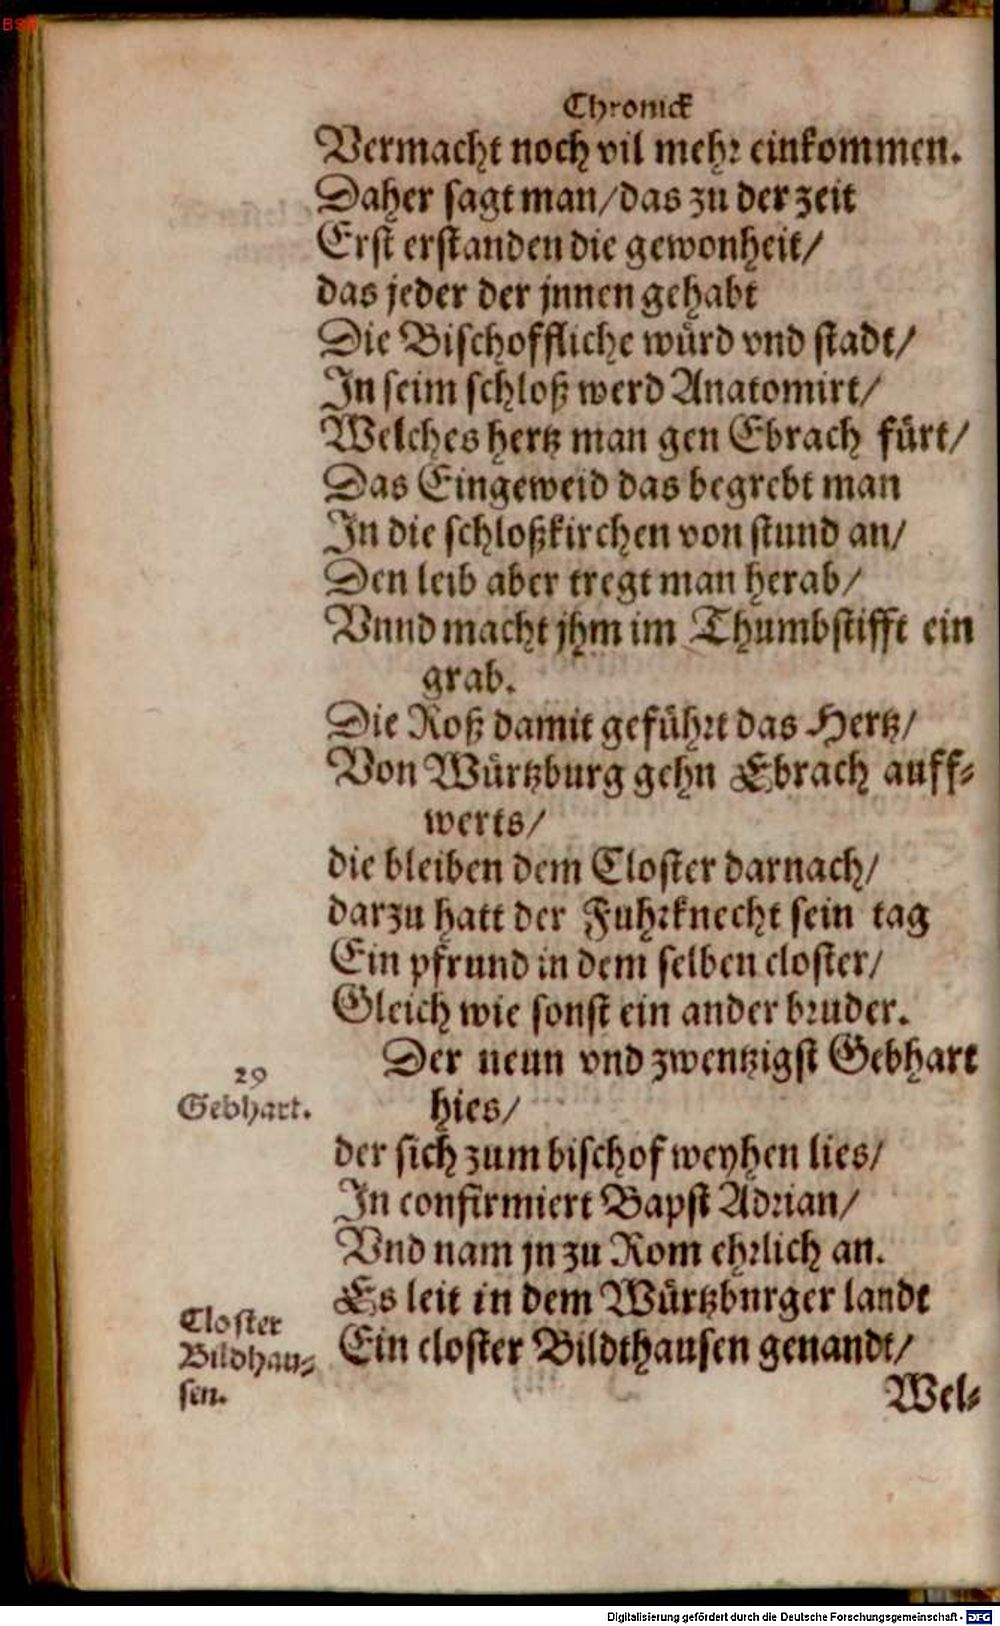 Chronick
Vermacht noch vil mehr einkommen.
Daher sagt man/das zu der zeit
Erst erstanden die gewonheit/
das jeder der jnnen gehabt
Die Bischoffliche würd vnd stadt/
In seim schloß werd Anatomirt/
Welches hertz man gen Ebrach fürt/
Das Eingeweid das begrebt man
In die schloßkirchen von stund an/
Den leib aber tregt man herab/
Vnnd macht jhm im Thumbstifft ein
grab.
Die Roß damit geführt das Hertz/
Von Würtzburg gehn Ebrach auff-
werts/
die bleiben dem Closter darnach/
darzu hatt der Fuhrknecht sein tag
Ein pfrund in dem selben closter/
Gleich wie sonst ein ander bruder.
Der neun vnd zwentzigst Gebhart
hies/
29
Gebhart.
der sich zum bischof weyhen lies/
In confirmiert Bapst Adrian/
Vnd nam jn zu Rom ehrlich an.
Es leit in dem Würtzburger landt
Ein closter Bildthausen genandt/
Closter
Bildhau-
sen.
Wel-
BSB
Digitalisierung gefördert durch die Deutsche Forschungsgemeinschaft - DFG